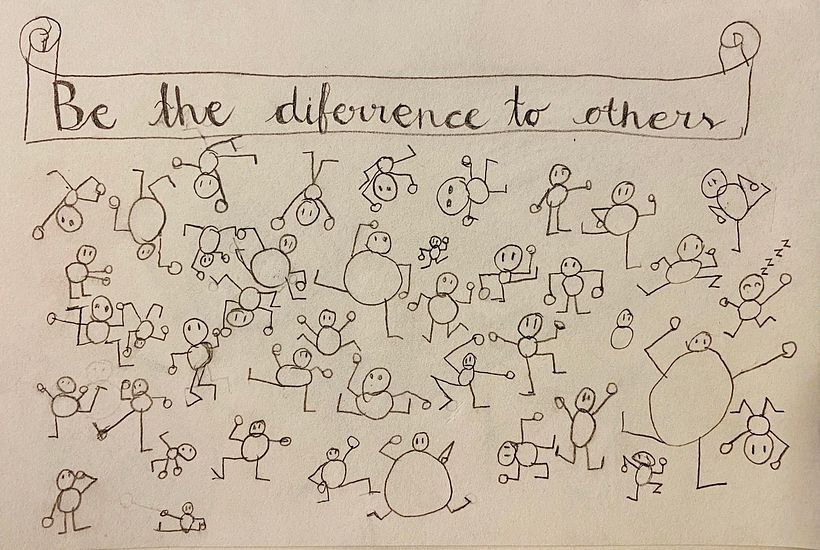 Be the diferrence to others
z z z z z